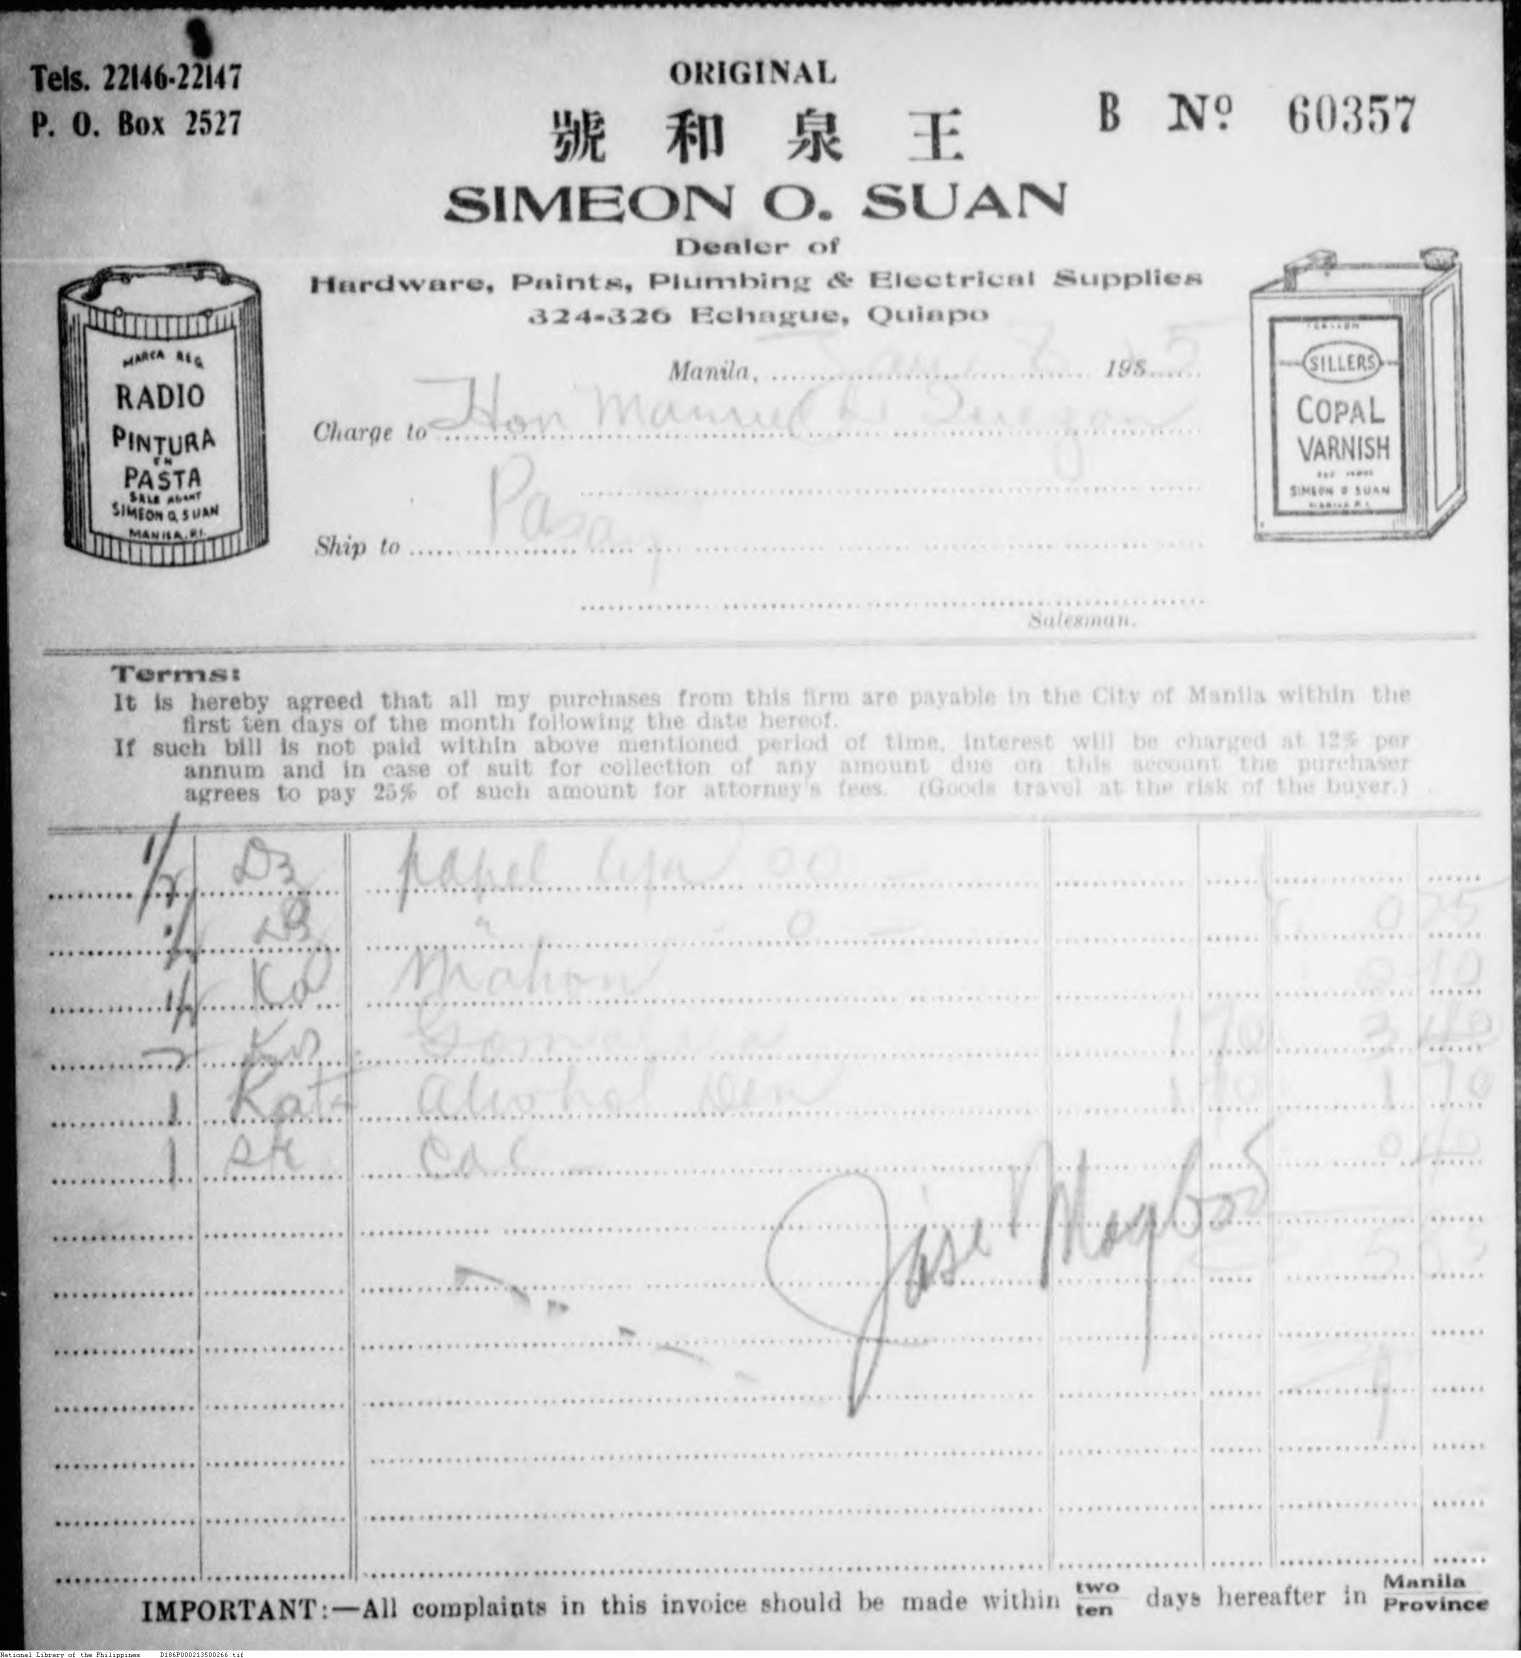 Tels. 22146-22147
P. O. Box 2527
ORIGINAL
B No. 60357
號和泉王
SIMEON O. SUAN
Dealer of
Hardware, Paints, Plumbing & Electrical Supplies
324-326 Echague, Quiapo
Manila, 193 5
Charge to Hon Manuel L. Quezon
Pasay
Ship to
Salesman.
MARCA REG
RADIO
PINTURA
EN
PASTA
SALE AGENT
SIMEON O. SUAN
MANILA, P.I.
SILLERS
COPAL
VARNISH
SIMEON O SUAN
MANILA P.I.
Terms:
It is hereby agreed that all my purchases from this firm are payable in the City of Manila within the
first ten days of the month following the date hereof.
If such bill is not paid within above mentioned period of time, interest will be charged at 12% per
annum and in case of suit for collection of any amount due on this account the purchaser
agrees to pay 25% of such amount for attorney's fees. (Goods travel at the risk of the buyer.)
1/2 Dz papel lija 00
1/2 Dz " 0 — 0 25
1/2 Ko 0 10
2 Kos 1 70 3 40
1 Alcohol Den 1 70 1 70
1 0 40
Jose
5 85
IMPORTANT:—All complaints in this invoice should be made within two ten days hereafter in Manila Province
National Library of the Philippines D186P000213500266.tif